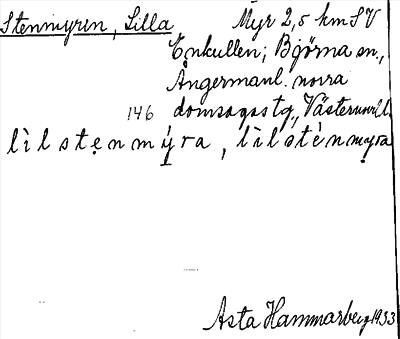 Stenmyren, Lilla Myr 2,5 km SV
Enkullen, Björna sn.,
Ångermanl. norra
146 domsagas tg., Västernorrl. l.
lìlstẹnmýra, lìlsténmyra
Asta Hammarberg 1933